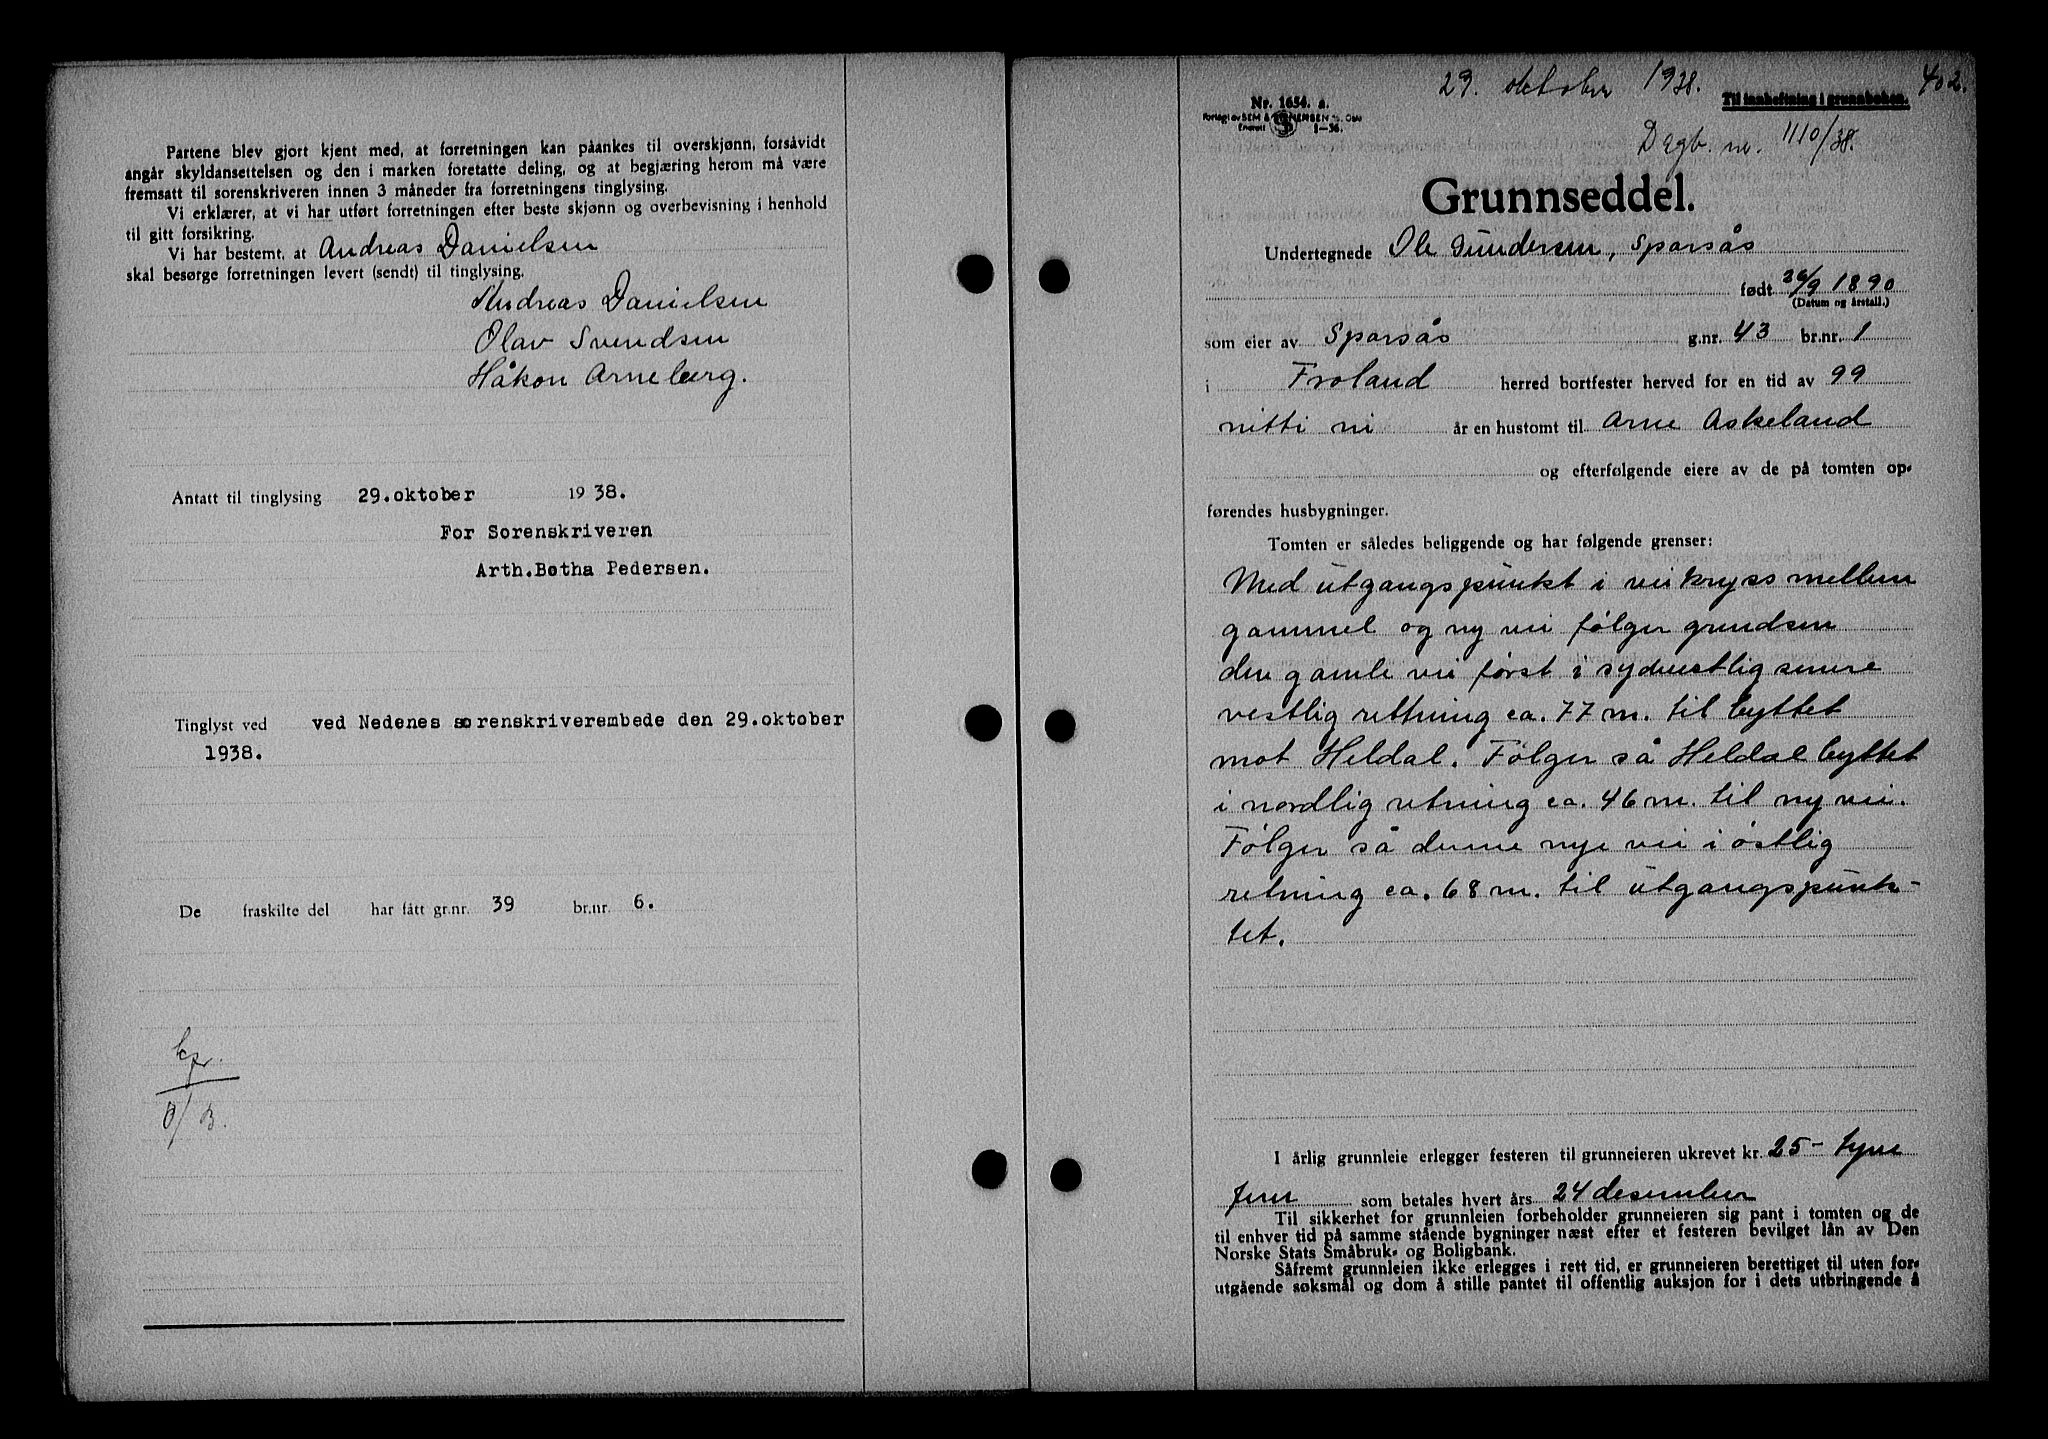 Partene blev gjort kjent med, at forretningen kan påankes til overskjønn, forsåvidt
angår skyldansettelsen og den i marken foretatte deling, og at begjæring herom må være
fremsatt til sorenskriveren innen 3 måneder fra forretningens tinglysing.
Vi erklærer, at vi har utført forretningen efter beste skjønn og overbevisning i henhold
til gitt forsikring.
Vi har bestemt, at Andreas Danielsen
skal besørge forretningen levert (sendt) til tinglysing.
Andreas Danielsen
Olav Svendsen
Håkon Arneberg.
Antatt til tinglysing 29.oktober 1938.
For Sorenskriveren
Arth.Botha Pedersen.
Tinglyst ved ved Nedenes sorenskriverembede den 29.oktober
1938.
De fraskilte del har fått gr.nr. 39 br.nr. 6.
29. oktober 1938. 402.
Nr. 1654. a. Til innheftning i grunnboken.
Forlagt av SEM & STENERSEN A/S, Oslo
Enerett 1-36.
Dagb. nr. 1110/38.
Grunnseddel.
Undertegnede Ole Gundersen, Sparsås
født 26/9 1890
(Datum og årstall.)
som eier av Sparsås g.nr. 43 br.nr. 1
i Froland herred bortfester herved for en tid av 99
nitti ni år en hustomt til Arne Askeland
og efterfølgende eiere av de på tomten op-
førendes husbygninger.
Tomten er således beliggende og har følgende grenser:
Med utgangspunkt i veikryss mellem
gammel og ny vei følger grendsen
den gamle vei først i sydvestlig senere
vestlig rettning ca. 77 m. til byttet
mot Heldal. Følger så Heldalbyttet
i nordlig retning ca. 46 m. til ny vei.
Følger så denne nye vei i østlig
retning ca. 68 m. til utgangspunk-
tet.
I årlig grunnleie erlegger festeren til grunneieren ukrevet kr. 25- tyve
fem som betales hvert års 24 desember
Til sikkerhet for grunnleien forbeholder grunneieren sig pant i tomten og de
til enhver tid på samme stående bygninger næst efter et festeren bevilget lån av Den
Norske Stats Småbruk- og Boligbank.
Såfremt grunnleien ikke erlegges i rett tid, er grunneieren berettiget til uten for-
utgående søksmål og dom å stille pantet til offentlig auksjon for i dets utbringende å